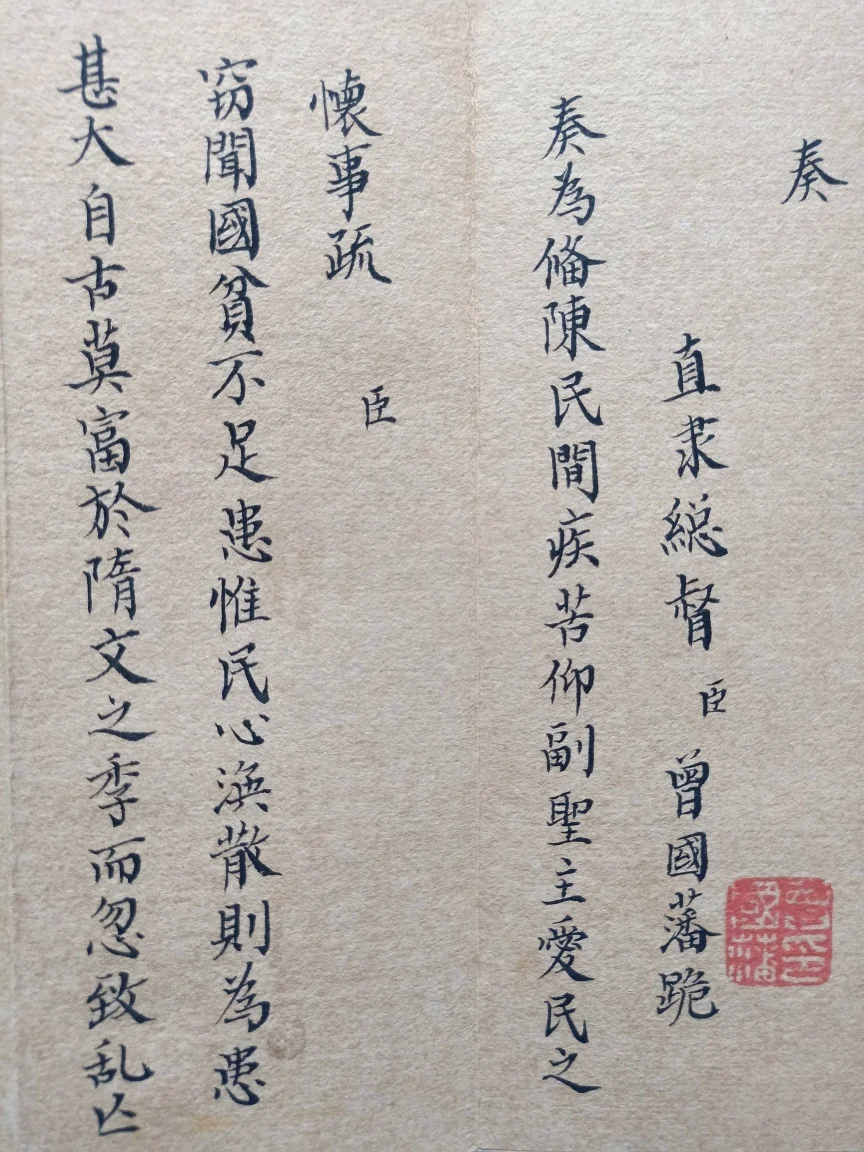 奏
直隶總督臣曾國藩跪
奏為俻陳民間疾苦仰副聖主愛民之
臣
懷事疏
窃聞國貧不足患惟民心渙散則為患
甚大自古莫富於隋文之季而忽致乱亡